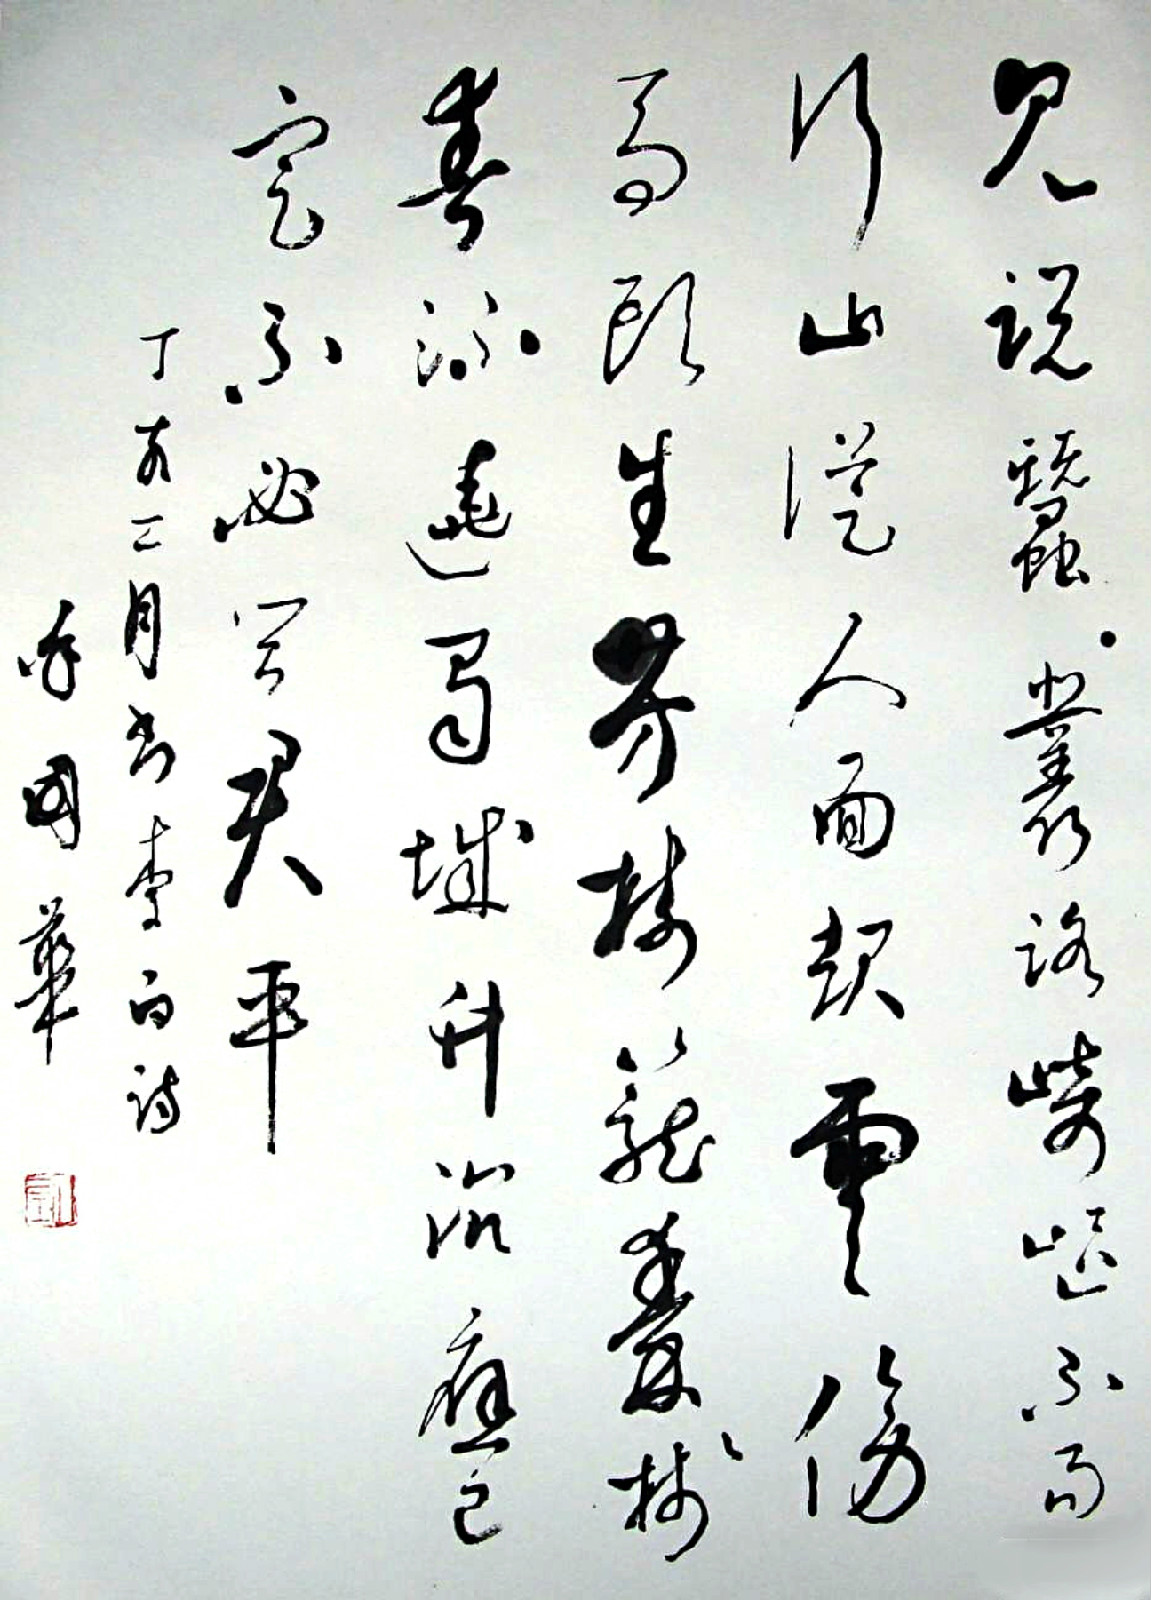 見說蠶叢路崎嶇不易
行山從人面起雲傍
馬頭生芳樹籠秦棧
春流遶蜀城升沉應已
定不必問君平
丁亥二月书李白诗
國華